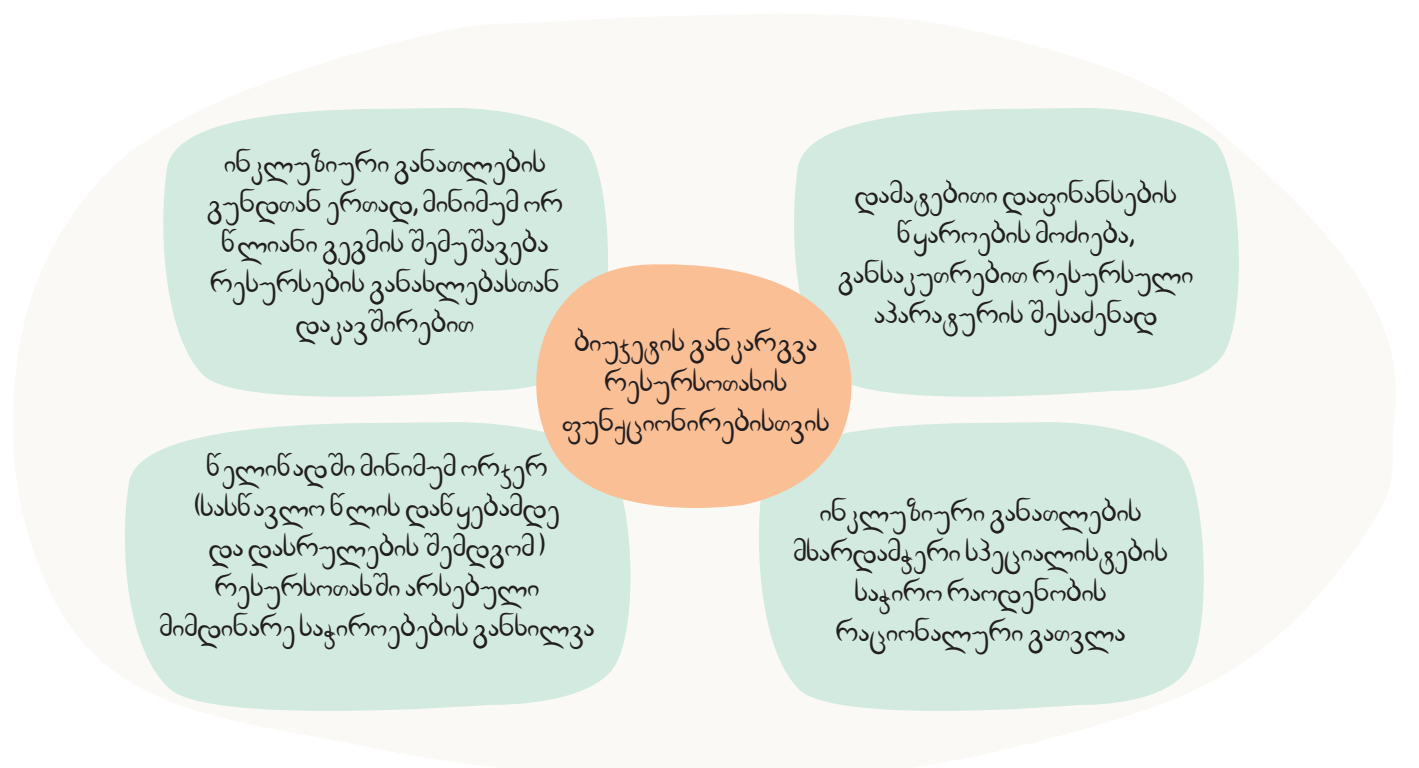 ინკლუზიური განათლების
გუნდთან ერთად, მინიმუმ ორ
წლიანი გეგმის შემუშავება
რესურსების განახლებასთან
დაკავშირებით
დამატებითი დაფინანსების
წყაროების მოძიება,
განსაკუთრებით რესურსული
აპარატურის შესაძენად
ბიუჯეტის განკარგვა
რესურსოთახის
ფუნქციონირებისთვის
წელიწადში მინიმუმ ორჯერ
(სასწავლო წლის დაწყებამდე
და დასრულების შემდგომ)
რესურსოთახში არსებული
მიმდინარე საჭიროებების განხილვა
ინკლუზიური განათლების
მხარდამჭერი სპეციალისტების
საჭირო რაოდენობის
რაციონალური გათვლა